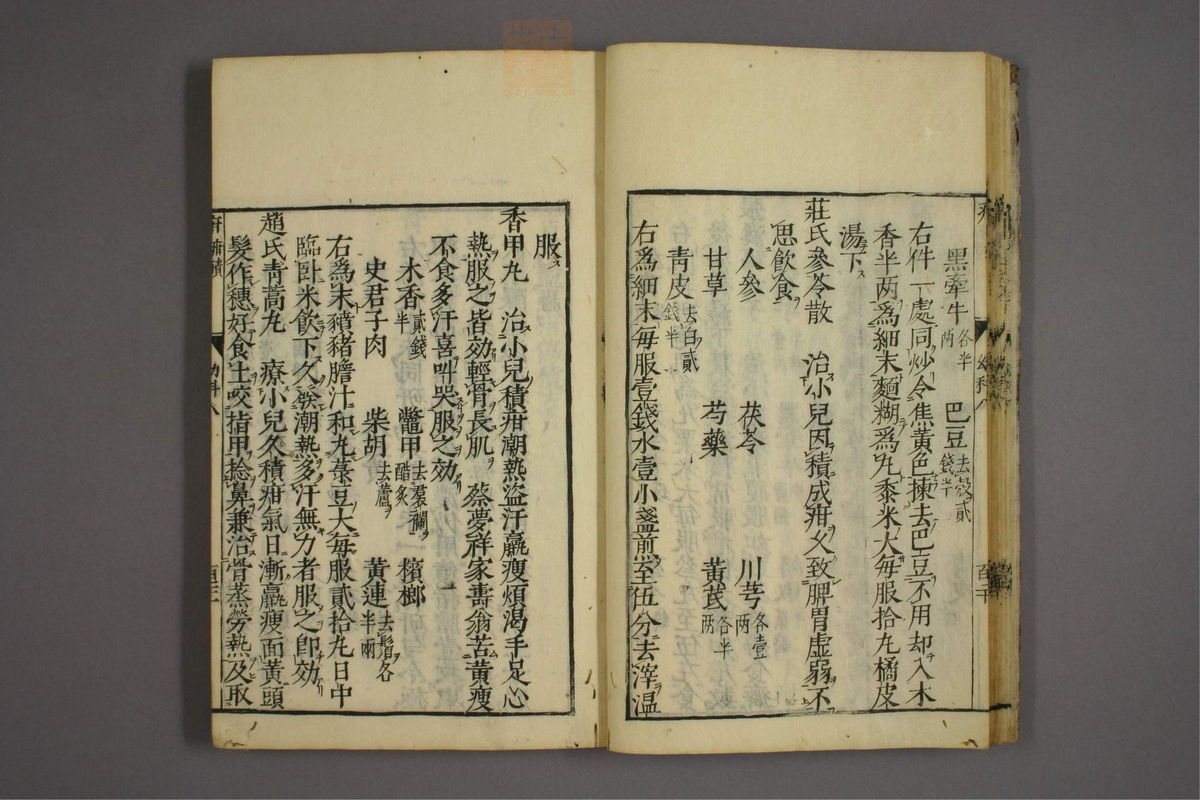 黑牽牛各半两 巴豆去殼貳錢半
右件一處同炒令焦黃色揀去巴豆不用却入木
香半两爲細末麵糊爲丸黍米大每服拾丸橘皮
湯下
莊氏參苓散 治小兒因積成疳久致脾胃虛弱不
思飲食
人參 茯苓 川芎各壹两
甘草 芍藥 黃芪各半两
靑皮去白貳錢半
右爲細末每服壹錢水壹小盞煎至伍分去滓溫
服
香甲丸 治小兒積疳潮熱盜汗羸瘦煩渴手足心
熱服之皆効輕骨長肌 蔡夢祥家壽翁苦黃瘦
不食多汗喜呌哭服之効
木香貳錢半 鱉甲去裙襴醋炙 檳榔
史君子肉 柴胡去蘆 黃連去鬚各半兩
右爲末豬膽汁和丸菉豆大每服貳拾丸日中
臨卧米飲下久發潮熱多汗無力者服之卽効
趙氏靑蒿丸 療小兒久積疳氣日漸羸瘦面黃頭
髮作穗好食土咬指甲捻鼻兼治骨蒸勞熱及取
幼科八